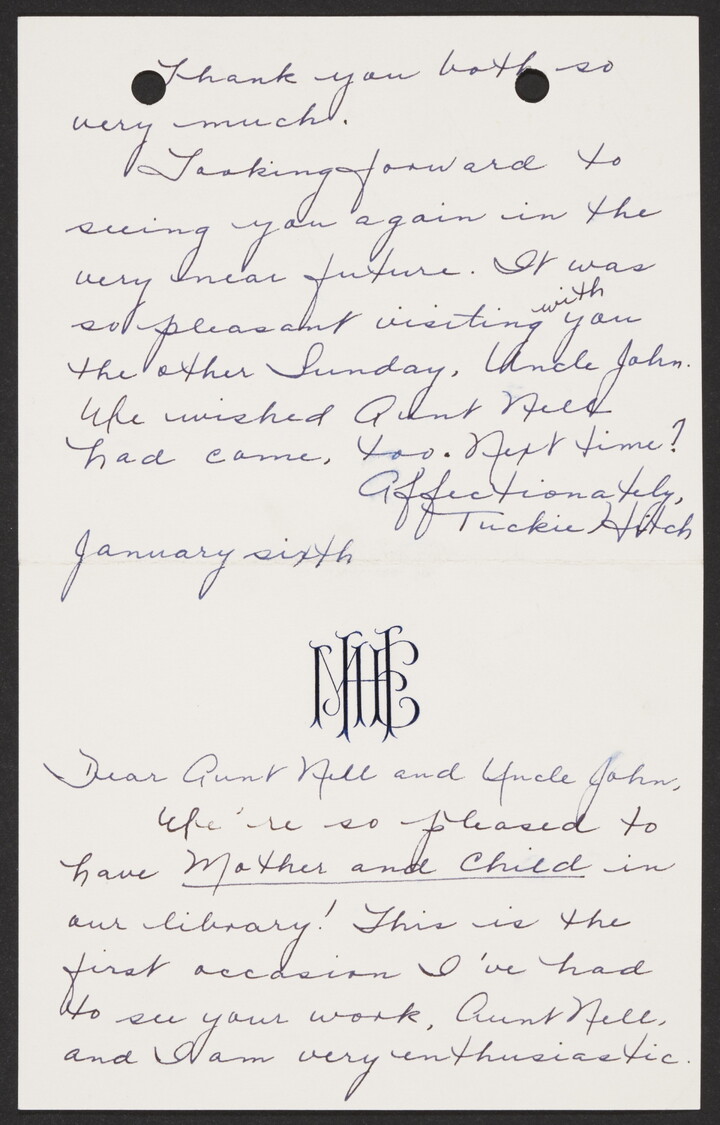 Thank you both so
very much.
Looking forward to
seeing you again in the
very near future. It was
so pleasant visiting with you
the other Sunday, Uncle John.
We wished Aunt Nell
had come, too. Next time?
Affectionately,
Tuckie Hitch
January sixth
Dear Aunt Nell and Uncle John,
We're so pleased to
have Mother and Child in
our library! This is the
first occasion I've had
to see your work, Aunt Nell,
and I am very enthusiastic.